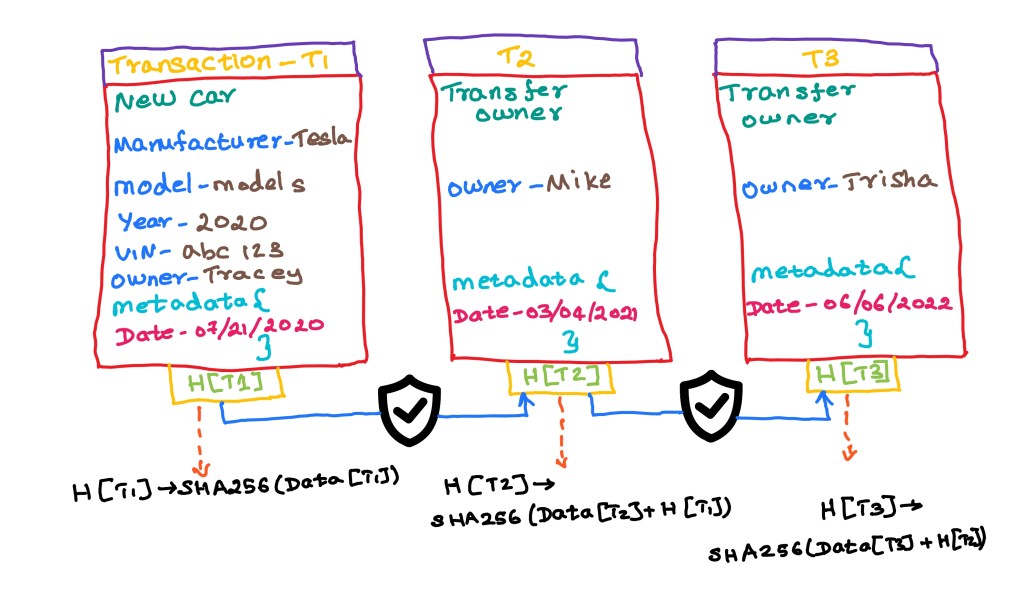 Transaction - T1
New car
Manufacturer - Tesla
model - model s
Year - 2020
VIN - abc 123
owner - Tracey
metadata {
Date - 07/21/2020
}
H[T1]
H[T1] → SHA256(Data[T1])
T2
Transfer
owner
owner - Mike
metadata {
Date - 03/04/2021
}
H[T2]
H[T2] →
SHA256(Data[T2] + H[T1])
T3
Transfer
owner
owner - Trisha
metadata {
Date - 06/06/2022
}
H[T3]
H[T3] →
SHA256(Data[T3] + H[T2])